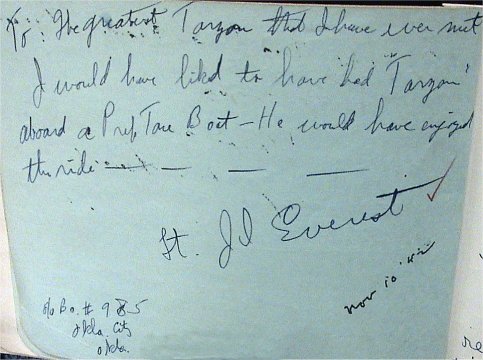 To: The greatest Tarzan that I have ever met
I would have liked to have had "Tarzan"
aboard a Boat — He would have enjoyed
the ride — — — —
Lt. Everest
Nov 10 '42
Bo. # 985
Okla. City
Okla.
re